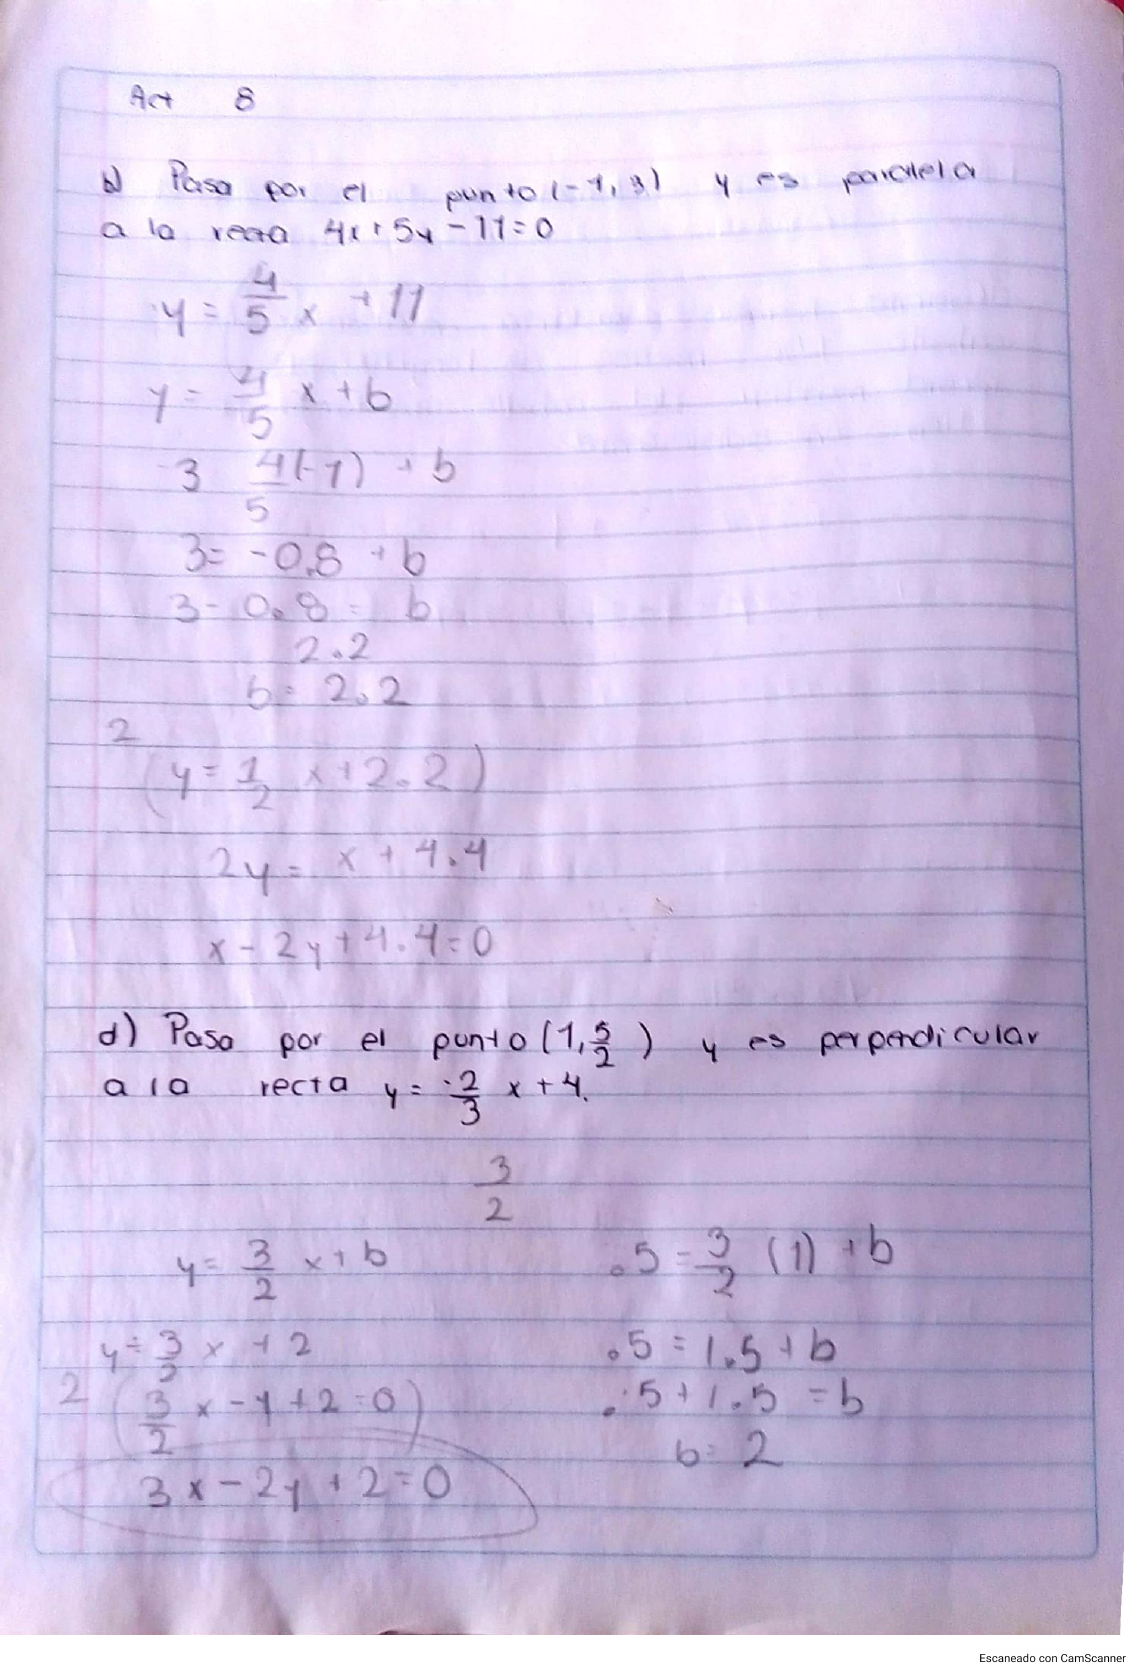 Act 8
b) Pasa por el punto (-1, 3) y es paralela
a la recta 4x+5y-11=0
y = 4/5 x + 11
y = 4/5 x + b
3 4(-1)/5 + b
3= -0.8 + b
3- 0.8 = b
2.2
b= 2.2
2 (y = 1/2 x + 2.2)
2y = x + 4.4
x - 2y + 4.4 = 0
d) Pasa por el punto (1, 5/2) y es perpendicular
a la recta y = -2/3 x + 4.
3/2
y = 3/2 x + b
.5 = 3/2 (1) + b
y = 3/2 x + 2
.5 = 1.5 + b
2 (3/2 x - y + 2 = 0)
.5 + 1.5 = b
b= 2
3x - 2y + 2 = 0
Escaneado con CamScanner